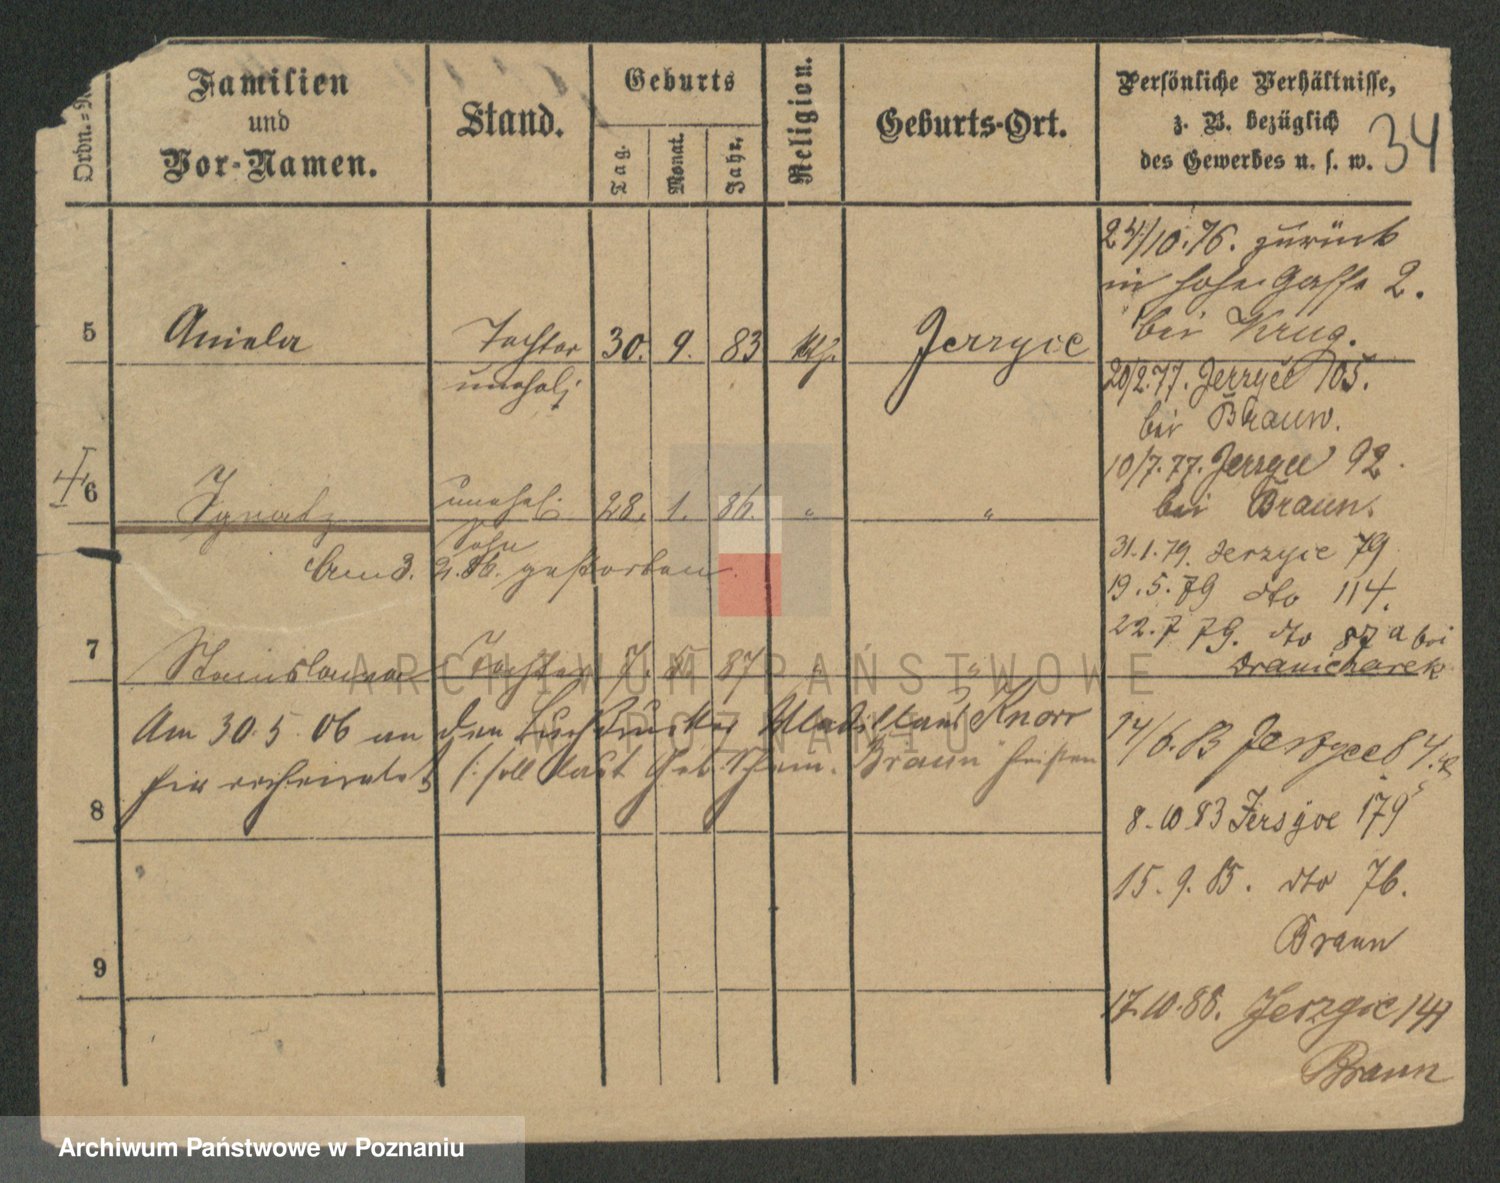 Ordn.=N
Familien
und
Vor-Namen.
Stand.
Geburts
Tag.
Monat.
Jahr.
Religion.
Geburts-Ort.
Persönliche Verhältnisse,
z. B. bezüglich
des Gewerbes u. s. w.
34
5 Aniela Tochter 30. 9. 83 kth. Jerzyce
unehel.
6 Ignatz unehel. 28. 1. 86. " "
Sohn
Am 3. 2. 86. gestorben.
7 Stanislawa Tochter 7. 5. 87 " "
Am 30. 5. 06 an den Buchdrucker Knorr
hier verheiratet (: soll laut Geb. Schein. Braun heißen
8
9
24/10.76. zurück
in hohe Gasse 2.
bei Krug.
20/2.77. Jerzyce 105.
bei Braun.
10/7.77. Jerzyce 92.
bei Braun.
31.1.79. Jerzyce 79
19.5.79 dto 114.
22.7 79. dto 87a bei
14/6.83 Jerzyce 84.
8.10 83 Jersyce 179
15.9.85. dto 76.
Braun
17.10.88. Jerzyce 141
Braun
ARCHIWUM PAŃSTWOWE
W POZNANIU
Archiwum Państwowe w Poznaniu